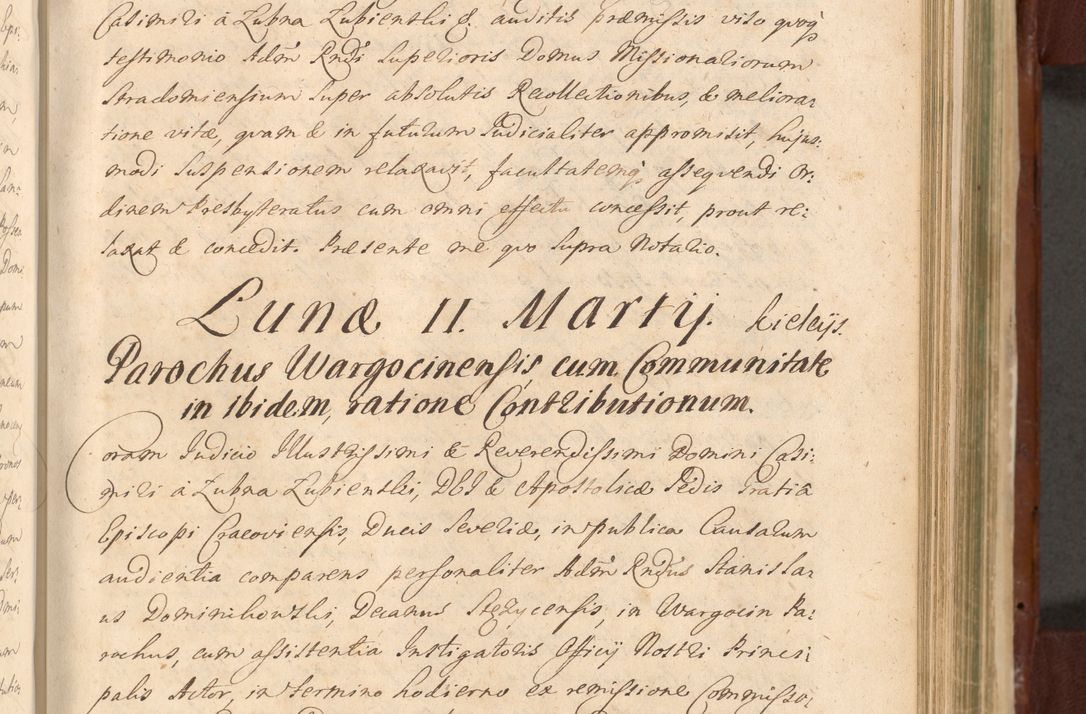 Casimiri à Łubna Łubienski &. auditis præmissis viso quoq̃
testimonio Adm̃ Rndi Superioris Domus Missionaliorum
Stradomiensium super absolutis Recollectionibus, & meliora-
tione vitæ, quam & in futurum Judicialiter appromisit, hujus:
modi suspensionem relaxavit, facultatemq̃ assequendi Or:
dinem Presbyteratus cum omni effectu concessit, prout re:
laxat & concedit. Præsente me quo supra Notario.
Lunæ 11. Martij. Kielcijs.
Parochus Wargocinensis cum Communitate
in ibidem, ratione Contributionum.
Coram Judicio Illustrissimi & Reverendissimi Domini Casi:
miri à Łubna Łubienski, DEI & Apostolicæ Sedis Gratiâ
Episcopi Cracoviensis, Ducis Severiæ, in publica Causarum
audientia comparens personaliter Adm̃ Rndus Stanisla-
us Dominikowski, Decanus Stężycensis, in Wargocin Pa:
rochus, cum assistentia Instigatoris Officij Nostri Princi:
palis Actor, in termino hodierno ex remissione Commisso: